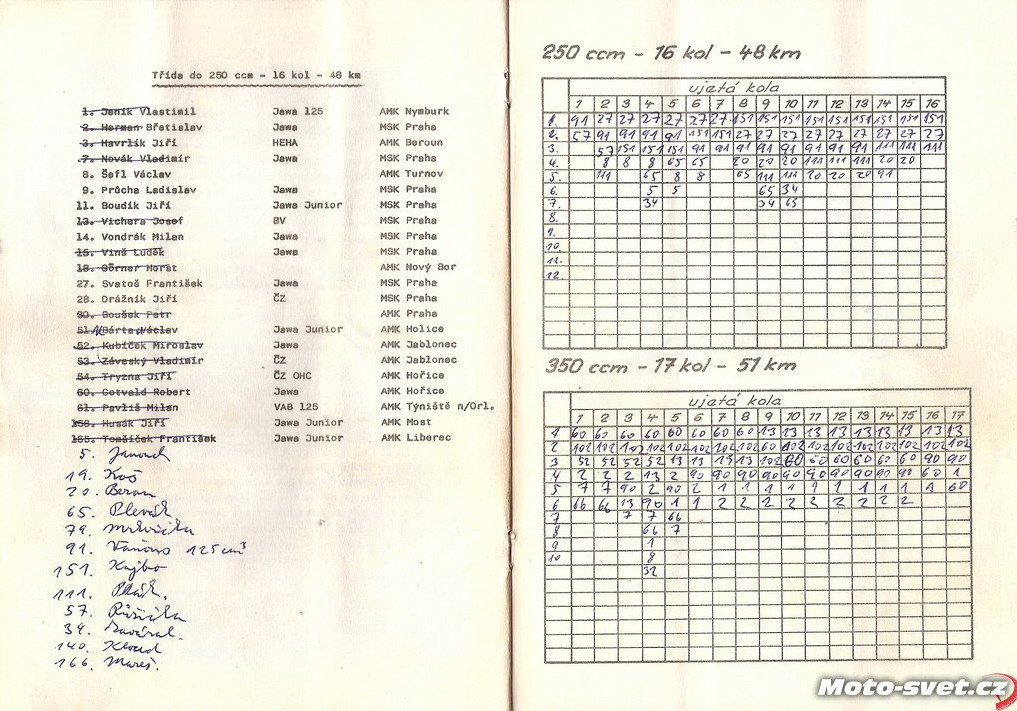 Třída do 250 ccm - 16 kol - 48 km
1. Jeník Vlastimil Jawa 125 AMK Nymburk
2. Herman Břetislav Jawa MSK Praha
3. Havrlík Jiří HEMA AMK Beroun
7. Novák Vladimír Jawa MSK Praha
8. Šefl Václav AMK Turnov
9. Průcha Ladislav Jawa MSK Praha
11. Boudík Jiří Jawa Junior MSK Praha
13. Vichera Josef BV MSK Praha
14. Vondrák Milan Jawa MSK Praha
15. Vinš Luděk Jawa MSK Praha
18. Görner Horst AMK Nový Bor
27. Svatoš František Jawa MSK Praha
28. Drážník Jiří ČZ MSK Praha
30. Boušek Petr AMK Praha
51. Bárta Václav Jawa Junior AMK Holice
52. Kubíček Miroslav Jawa AMK Jablonec
53. Záveský Vladimír ČZ AMK Jablonec
54. Tryzna Jiří ČZ OHC AMK Hořice
60. Gotvald Robert Jawa AMK Hořice
61. Pavliš Milan VAB 125 AMK Týniště n/Orl.
150. Husák Jiří Jawa Junior AMK Most
165. Tomšíček František Jawa Junior AMK Liberec
5. Janouch
19. Koš
20. Beran
65. Plevák
79. Mrkvička
91. 125 cm³
151. Kajbr
111.
57. Růžička
34. Zavázal
140. Kloud
166. Mareš.
250 ccm - 16 kol - 48 km
ujetá kola
1 2 3 4 5 6 7 8 9 10 11 12 13 14 15 16
1. 91 27 27 27 27 27 27 151 151 151 151 151 151 151 151 151
2. 57 91 91 91 91 151 151 27 27 27 27 27 27 27 27 27
3. 57 151 151 151 91 91 91 91 91 91 91 91 111 111 111
4. 8 8 8 65 65 20 20 20 111 111 111 20 20
5. 111 65 8 8 65 111 111 20 20 20 91
6. 5 5 65 34
7. 34 34 65
8.
9.
10.
11.
12
350 ccm - 17 kol - 51 km
ujetá kola
1 2 3 4 5 6 7 8 9 10 11 12 13 14 15 16 17
1 60 60 60 60 60 60 60 60 13 13 13 13 13 13 13 13 13
2 102 102 102 102 102 102 102 102 60 102 102 102 102 102 102 102 102
3 52 52 52 52 13 13 13 13 102 60 60 60 60 60 60 90 90
4 2 2 2 13 2 90 90 90 90 90 90 90 90 90 90 60 1
5 7 7 90 2 90 2 1 1 1 1 1 1 1 1 1 1 60
6 66 66 13 90 1 1 2 2 2 2 2 2 2 2 2
7 7 7 66
8 66 7
9 1
10 8
32
Moto-svet.cz